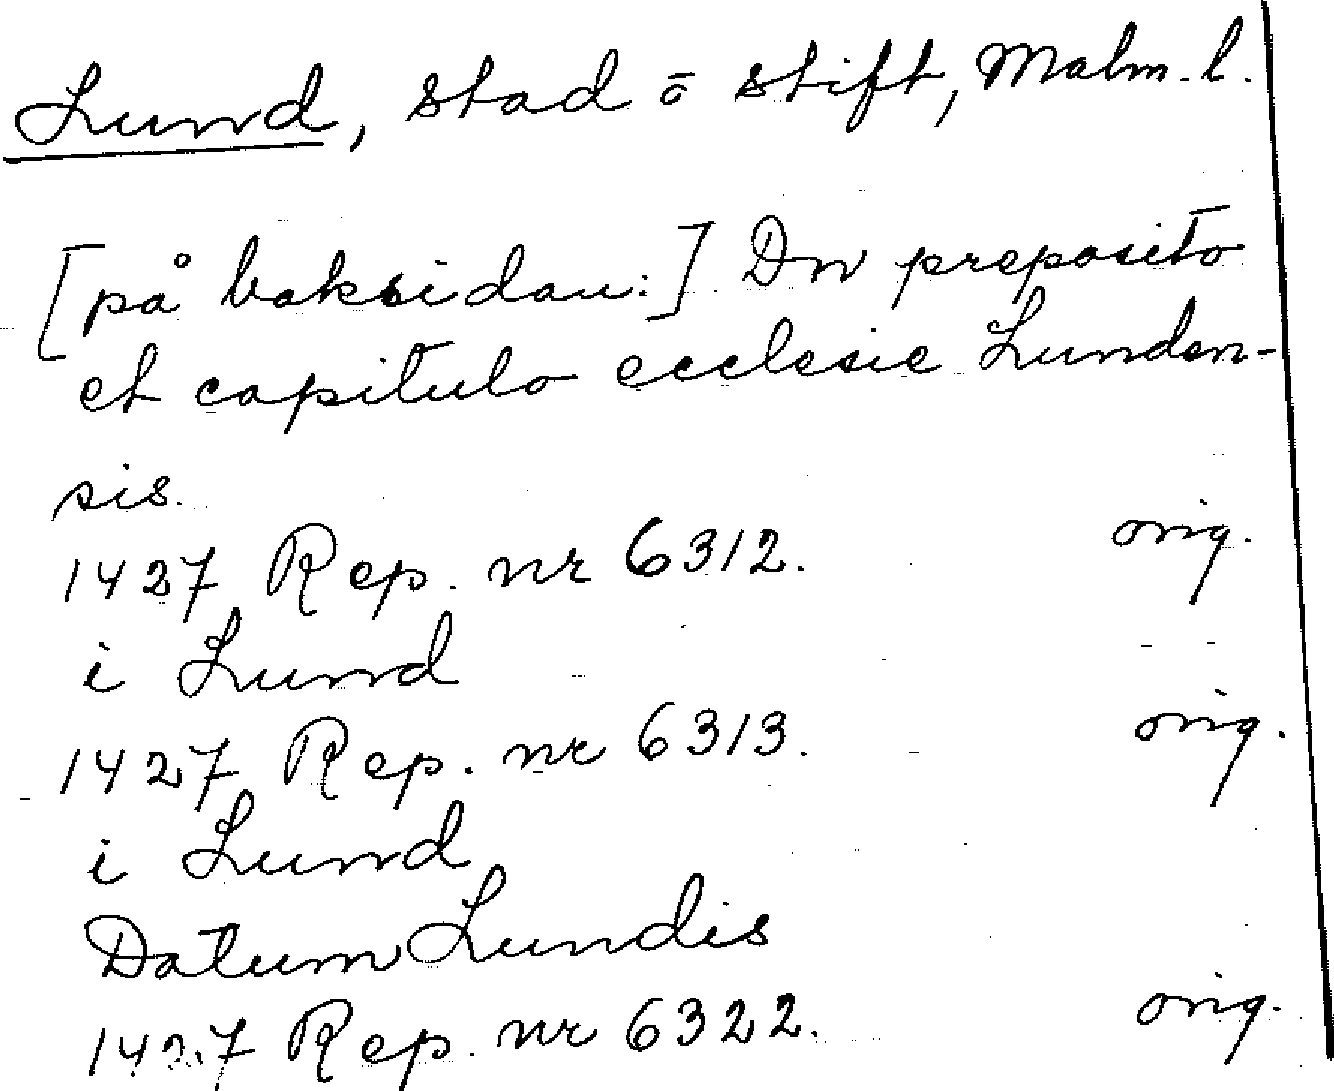 Lund, stad o stift, Malm. l.
[på baksidan:] Dn preposito
et capitulo ecclesie Lunden-
sis.
1427 Rep. nr 6312. orig.
i Lund
1427 Rep. nr 6313. orig.
i Lund
Datum Lundis
1427 Rep. nr 6322. orig.